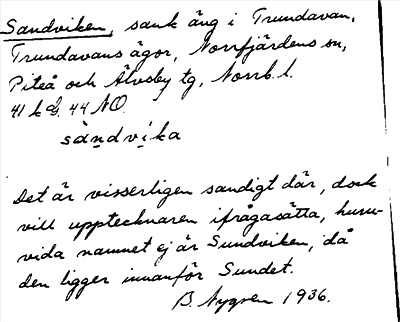 Sandviken, sank äng i Trundavan,
Trundavans ägor, Norrfjärdens sn,
Piteå och Älvsby tg, Norrb. l.
41 k G. 44 NO.
sàndvika
Det är visserligen sandigt där, dock
vill upptecknaren ifrågasätta, huru-
vida namnet ej är Sundviken, då
den ligger innanför Sundet.
B. Nygren 1936.